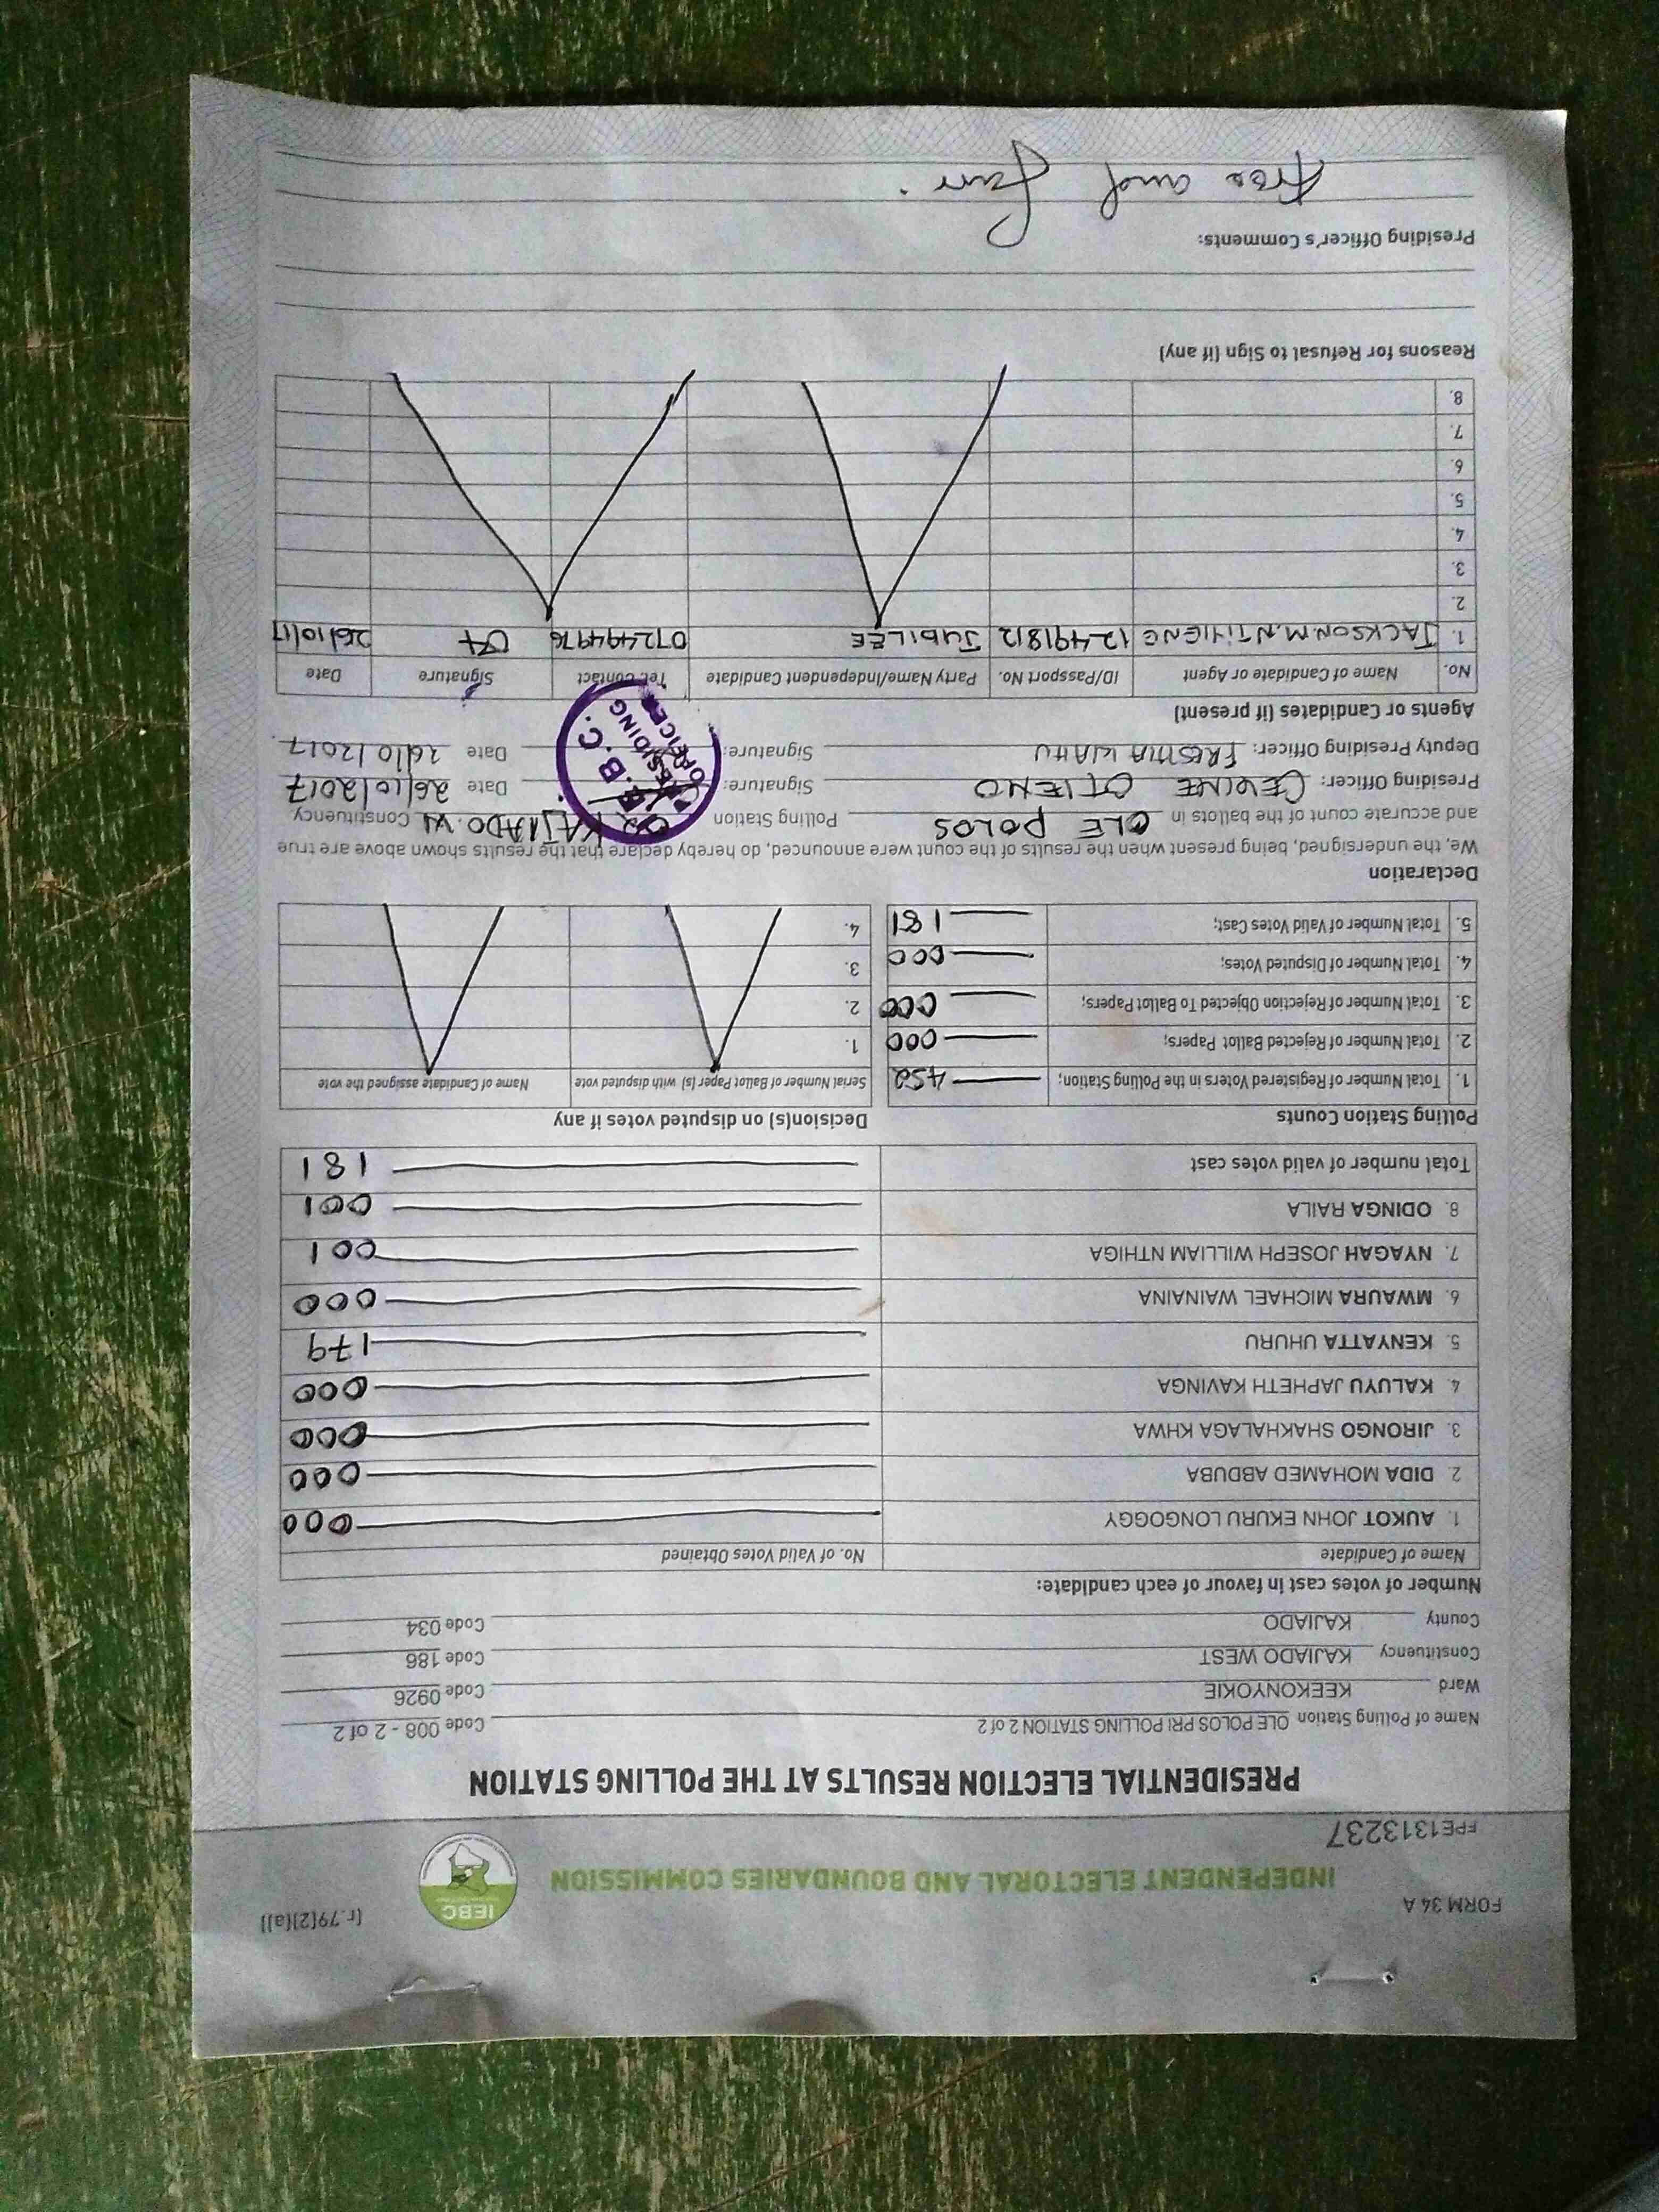 FORM 34 A
(r.79(2)(a))
INDEPENDENT ELECTORAL AND BOUNDARIES COMMISSION
IEBC
FPE1313237
PRESIDENTIAL ELECTION RESULTS AT THE POLLING STATION
Name of Polling Station OLE POLOS PRI POLLING STATION 2 of 2 Code 008 - 2 of 2
Ward KEEKONYOKIE Code 0926
Constituency KAJIADO WEST Code 186
County KAJIADO Code 034
Number of votes cast in favour of each candidate:
Name of Candidate No. of Valid Votes Obtained
1. AUKOT JOHN EKURU LONGOGGY 000
2. DIDA MOHAMED ABDUBA 000
3. JIRONGO SHAKHALAGA KHWA 000
4. KALUYU JAPHETH KAVINGA 000
5. KENYATTA UHURU 179
6. MWAURA MICHAEL WAINAINA 000
7. NYAGAH JOSEPH WILLIAM NTHIGA 001
8. ODINGA RAILA 001
Total number of valid votes cast 181
Polling Station Counts
1. Total Number of Registered Voters in the Polling Station; 452
2. Total Number of Rejected Ballot Papers; 000
3. Total Number of Rejection Objected To Ballot Papers; 000
4. Total Number of Disputed Votes; 000
5. Total Number of Valid Votes Cast; 181
Decision(s) on disputed votes if any
Serial Number of Ballot Paper (s) with disputed vote Name of Candidate assigned the vote
1.
2.
3.
4.
Declaration
We, the undersigned, being present when the results of the count were announced, do hereby declare that the results shown above are true
and accurate count of the ballots in OLE POLOS Polling Station 02 KAJIADO W. Constituency.
Presiding Officer: OTIENO Signature: Date 26/10/2017
Deputy Presiding Officer: Signature: Date 26/10/2017
PRESIDING OFFICER
Agents or Candidates (if present)
No. Name of Candidate or Agent ID/Passport No. Party Name/Independent Candidate Tel. Contact Signature Date
1. JACKSON M. 12491812 JUBILEE 0724494976 26/10/17
2.
3.
4.
5.
6.
7.
8.
Reasons for Refusal to Sign (if any)
Presiding Officer's Comments:
free and fair.